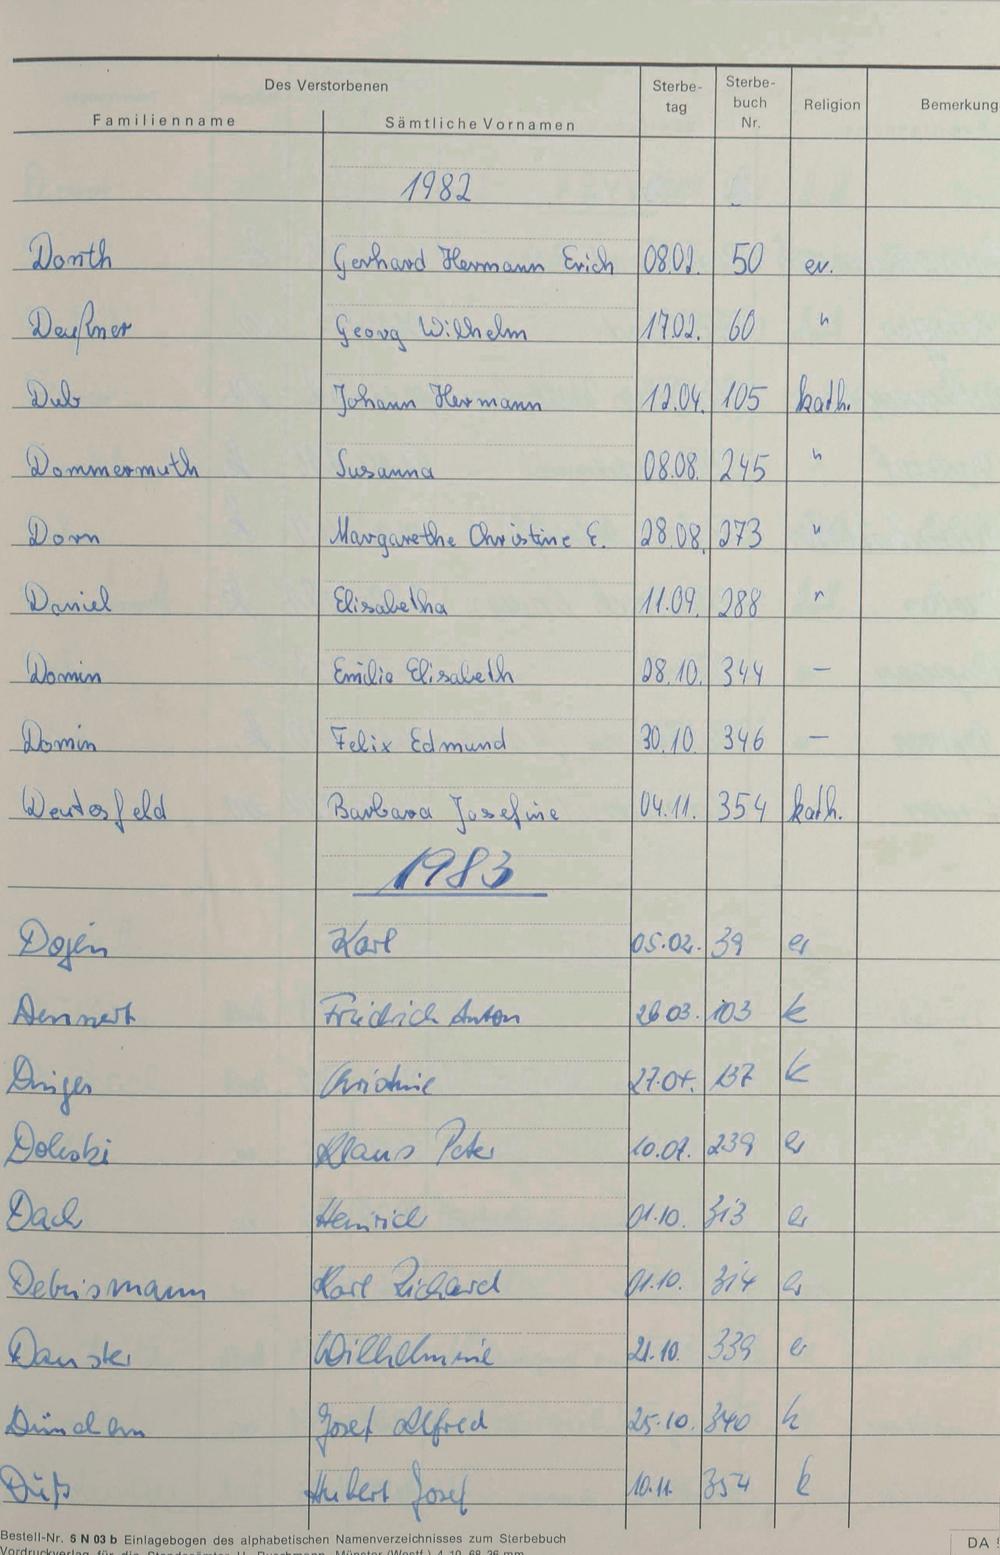 Des Verstorbenen
Familienname Sämtliche Vornamen Sterbe-tag Sterbe-buch Nr. Religion Bemerkung
1982
Donth Gerhard Hermann Erich 08.02. 50 ev.
Deußner Georg Wilhelm 17.02. 60 "
Dub Johann Hermann 12.04. 105 kath.
Dommermuth Susanna 08.08. 245 "
Dorn Margarethe Christine E. 28.08. 273 "
Daniel Elisabetha 11.09. 288 "
Domin Emilie Elisabeth 28.10. 344 —
Domin Felix Edmund 30.10. 346 —
Barbara Josefine 04.11. 354 kath.
1983
Karl 05.02. 39
Dennert Friedrich Anton 26.03. 103 k
Christine 27.04. 137 k
Klaus Peter 239
Dach Heinrich 01.10. 313
Karl Richard 01.10. 314
Wilhelmine 21.10. 339
Josef Alfred 25.10. 340 k
Düß Hubert Josef 10.11. 354 k
Bestell-Nr. 5 N 03 b Einlagebogen des alphabetischen Namenverzeichnisses zum Sterbebuch
DA